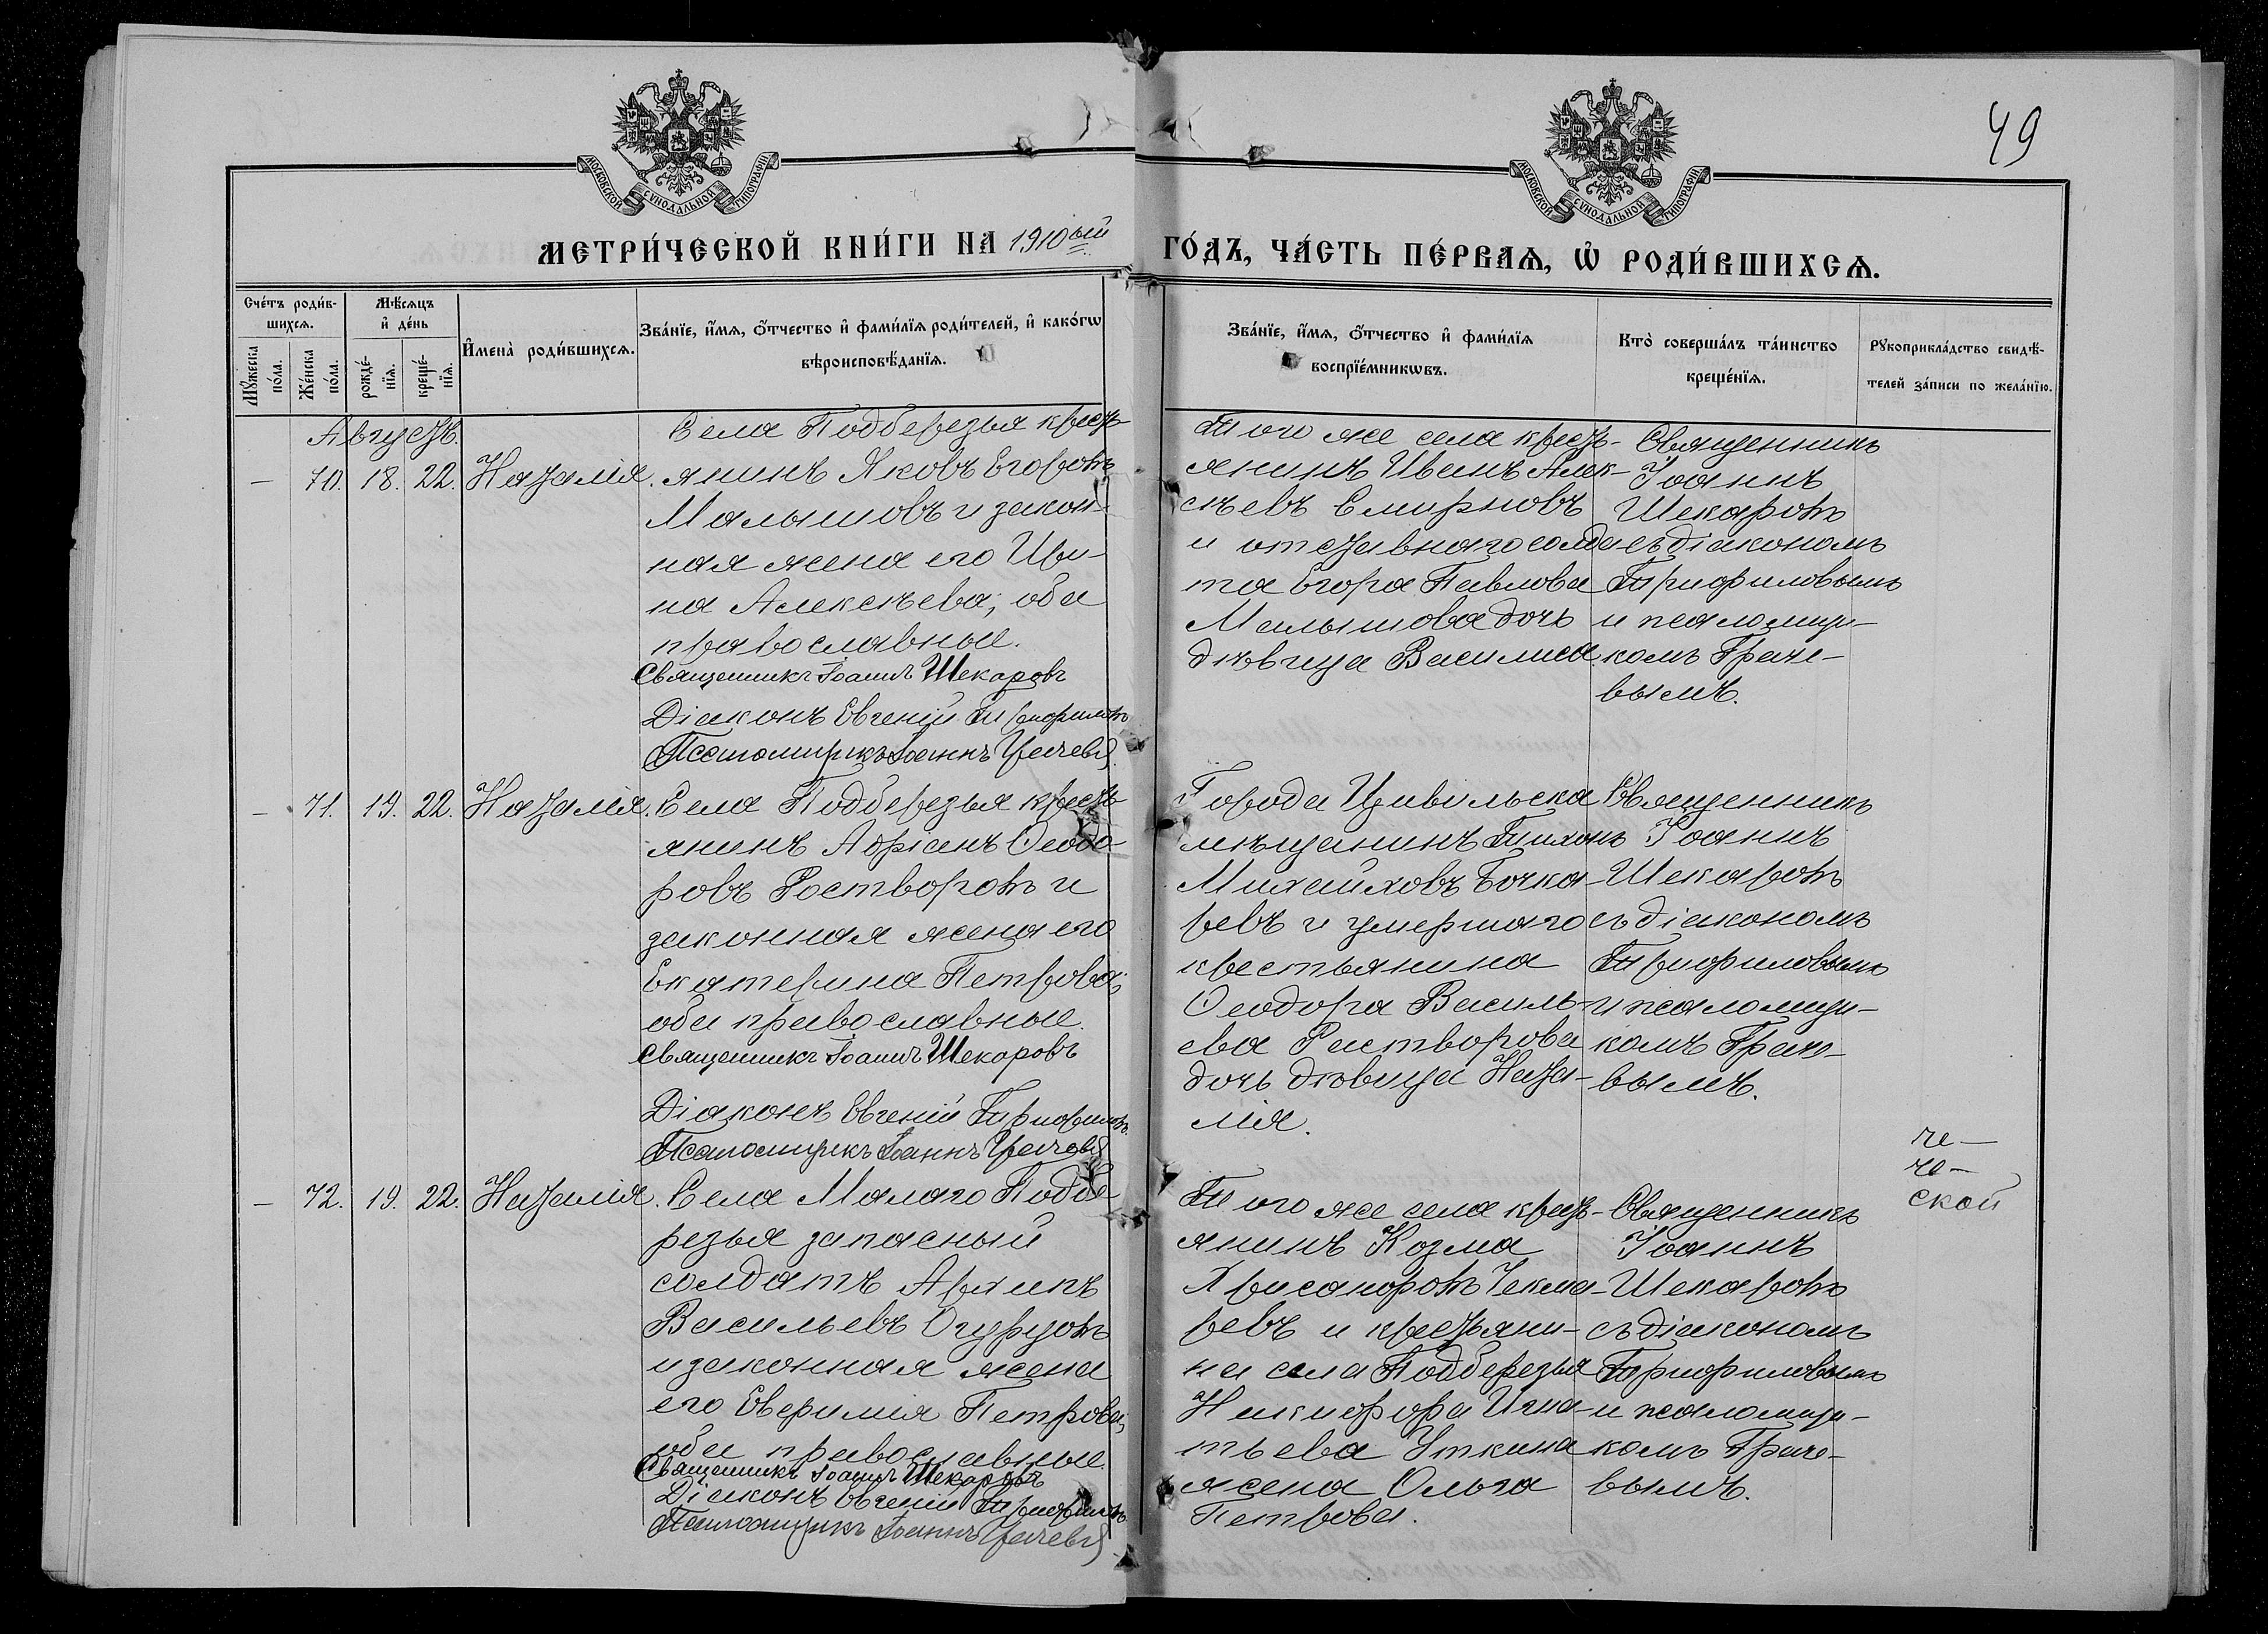 49
МОСКОВСКОЙ СѴНОДАЛЬНОЙ ТИПОГРАФІИ
МОСКОВСКОЙ СѴНОДАЛЬНОЙ ТИПОГРАФІИ
МЕТРИ́ЧЕСКОЙ КНИ́ГИ НА 1910ый ГО́ДЪ, ЧА́СТЬ ПЕ́РВАѦ, Ѡ҆ РОДИ́ВШИХСѦ.
Сче́тъ роди́в-
шихсѧ.
Мꙋ́жеска
по́ла.
Же́нска
по́ла.
Мѣ́сѧцъ
и҆ де́нь
рожде́-
нїѧ.
креще́-
нїѧ.
И҆мена̀ роди́вшихсѧ.
Зва́нїе, и҆́мѧ, ѻ҆́тчество и҆ фами́лїѧ роди́телей, и҆ како́гѡ
вѣроисповѣ́данїѧ.
Зва́нїе, и҆́мѧ, ѻ҆́тчество и҆ фами́лїѧ
воспрїе́мникѡвъ.
Кто̀ соверша́лъ та́инство
креще́нїѧ.
Рꙋкоприкла́дство свидѣ́-
телей за́писи по жела́нїю.
Августъ.
— 70. 18. 22. Наталія.
Села Подберезья кресть-
янинъ Яковъ Егоровъ
Малышовъ и закон-
ная жена его Ири-
на Алексѣева; оба
православные.
Священникъ Іоаннъ Шекаровъ
Діаконъ Евгеній Трифиловъ
Псаломщикъ Іоаннъ Грачевъ
Того же села кресть-
янинъ Иванъ Алек-
сѣевъ Смирновъ
и отставного солда-
та Егора Павлова
Малышова дочь
дѣвица Василиса
Священникъ
Іоаннъ
Шекаровъ
съ діакономъ
Трифиловымъ
и псаломщи-
комъ Граче-
вымъ.
— 71. 19. 22. Наталія.
Села Подберезья кресть-
янинъ Адріанъ Ѳеодо-
ровъ Растворовъ и
законная жена его
Екатерина Петрова;
оба православные.
Священникъ Іоаннъ Шекаровъ
Діаконъ Евгеній Трифиловъ
Псаломщикъ Іоаннъ Грачевъ
Города Цивильска
мѣщанинъ Тихонъ
Михайловъ Бочка-
ревъ и умершаго
крестьянина
Ѳеодора Василь-
ева Растворова
дочь дѣвица Ната-
лія.
Священникъ
Іоаннъ
Шекаровъ
съ діакономъ
Трифиловымъ
и псаломщи-
комъ Граче-
вымъ.
че-
че-
ской
— 72. 19. 22. Наталія.
Села Малаго Подбе-
резья запасный
солдатъ Архипъ
Васильевъ Огурцовъ
и законная жена
его Евфимія Петрова,
оба православные.
Священникъ Іоаннъ Шекаровъ
Діаконъ Евгеній Трифиловъ
Псаломщикъ Іоаннъ Грачевъ
Того же села кресть-
янинъ Козма
Хрисанфовъ Чекма-
ревъ и крестьяни-
на села Подберезья
Никифора Игна-
тьева Уткина
жена Ольга
Петрова.
Священникъ
Іоаннъ
Шекаровъ
съ діакономъ
Трифиловымъ
и псаломщи-
комъ Граче-
вымъ.